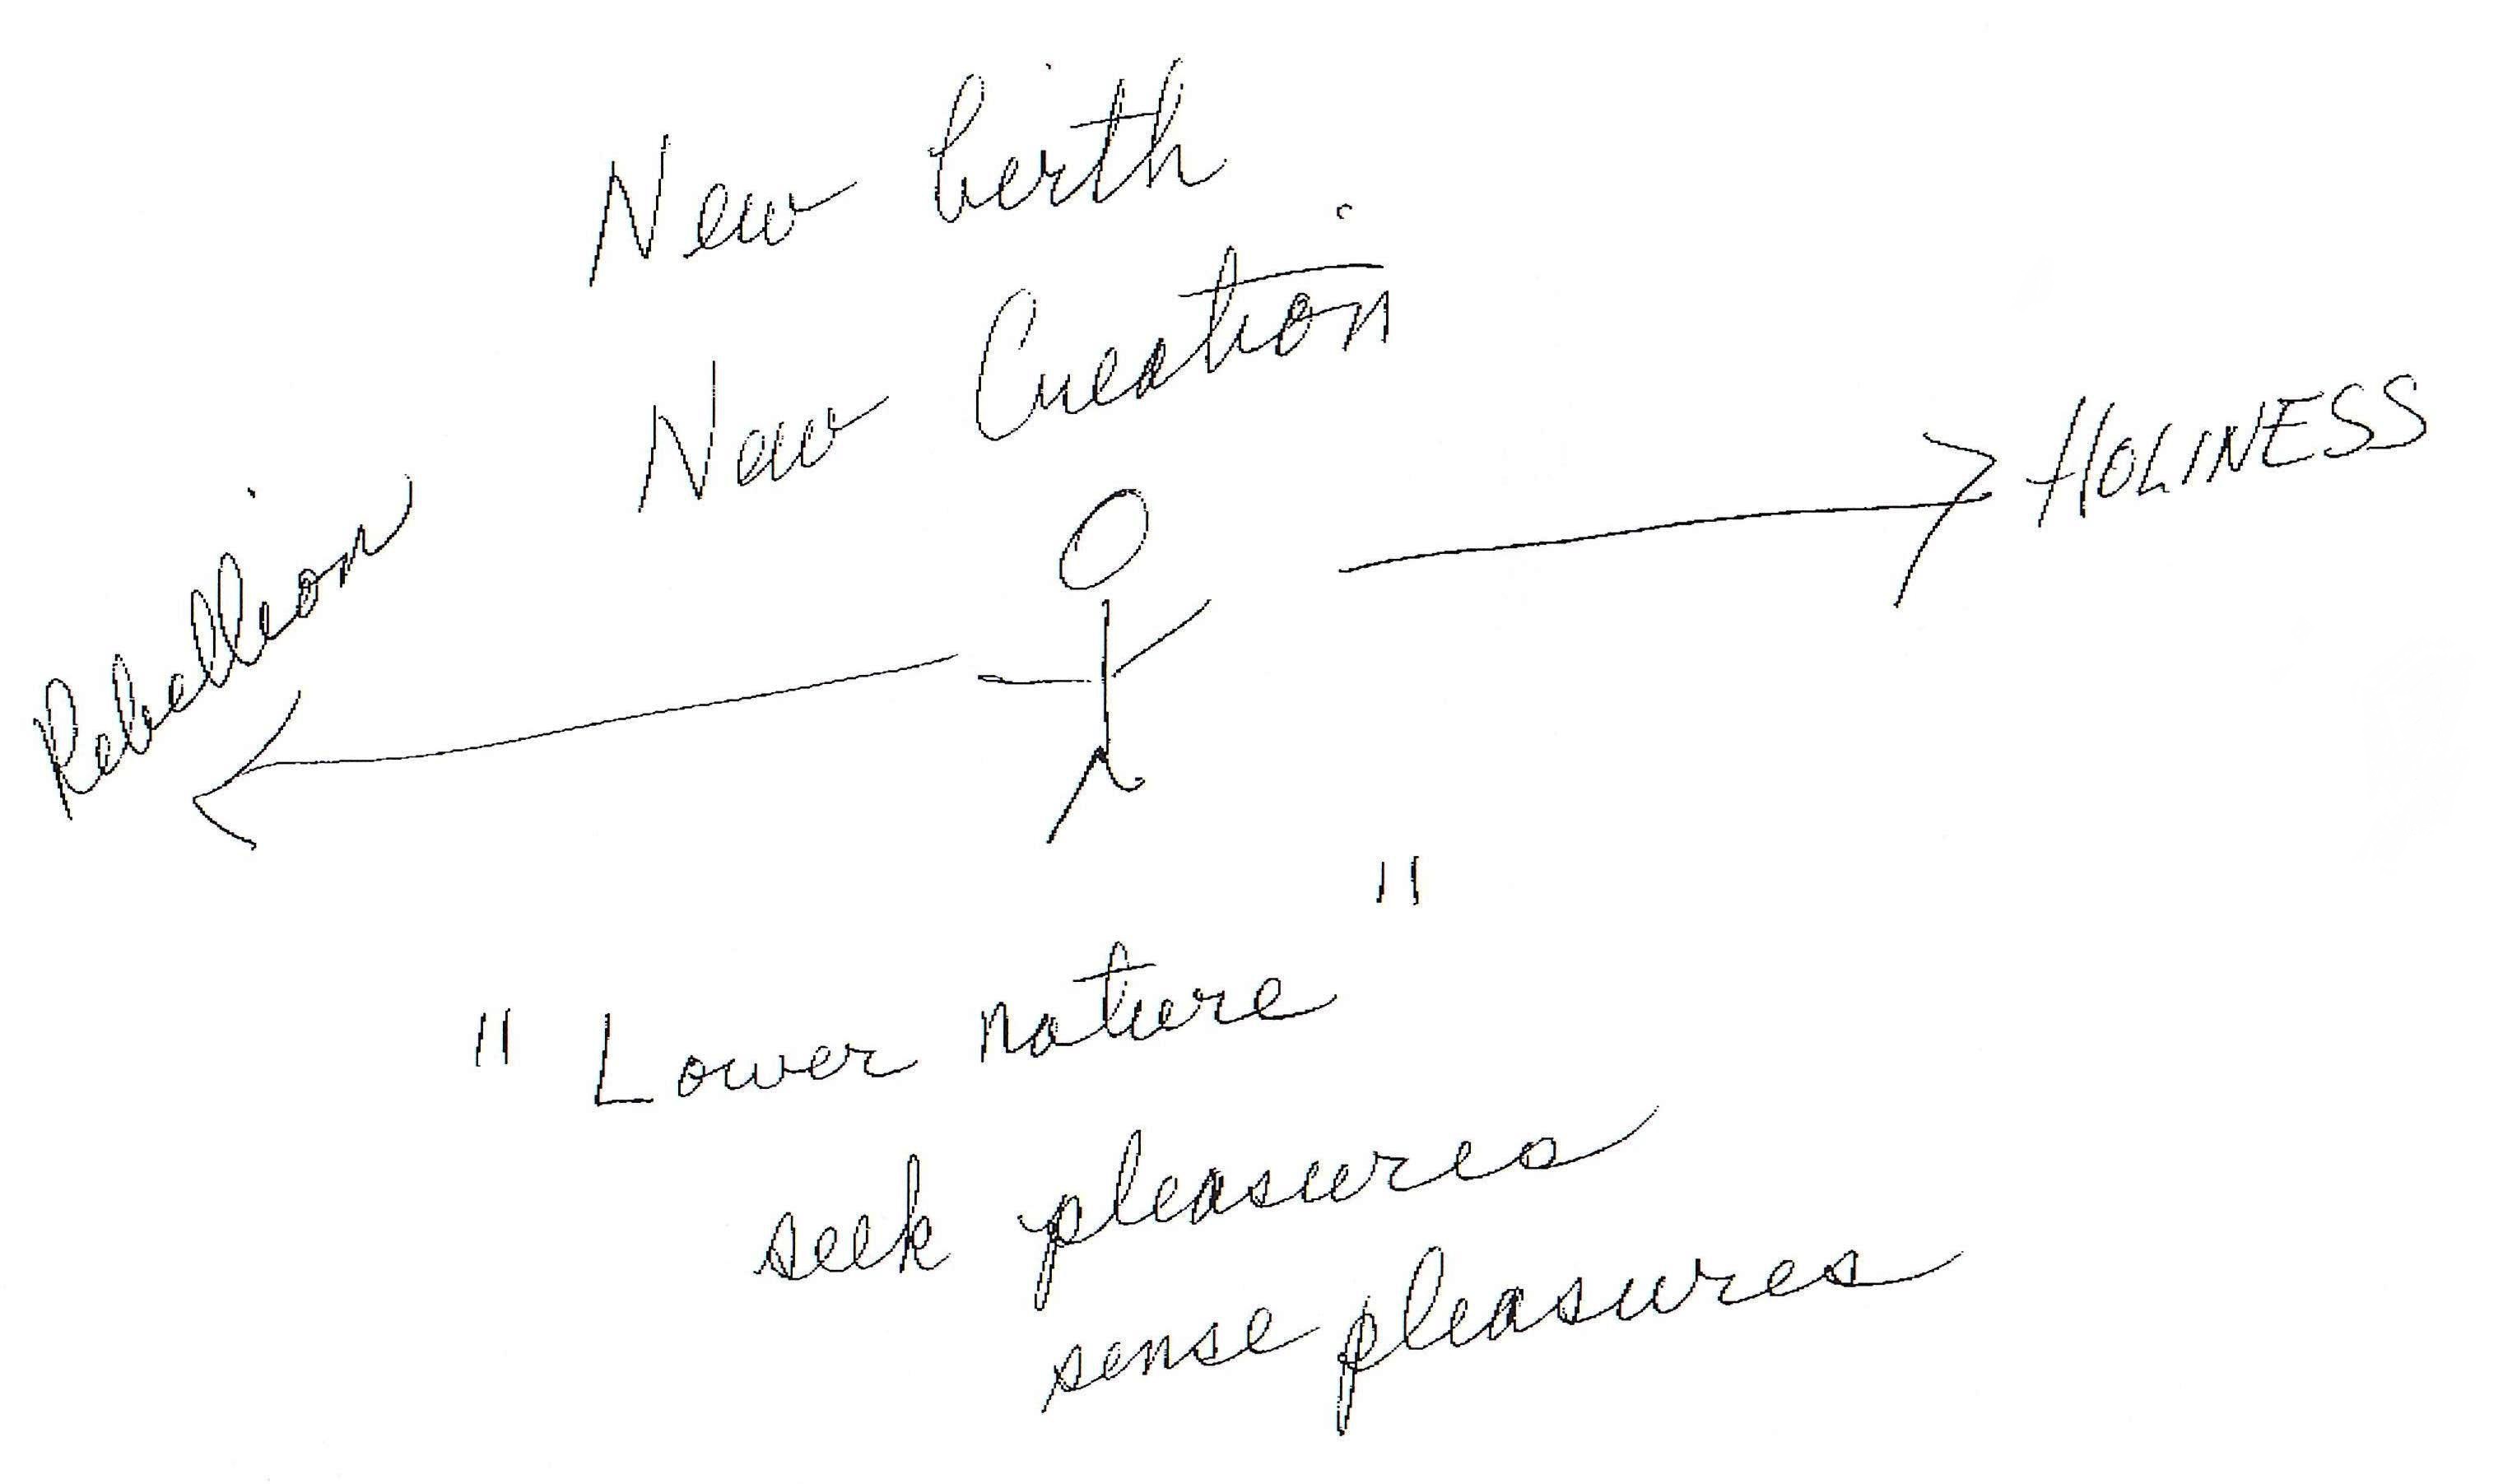 New birth
New Creation
HOLINESS
Rebellion
"Lower nature"
seek pleasures
sense pleasures